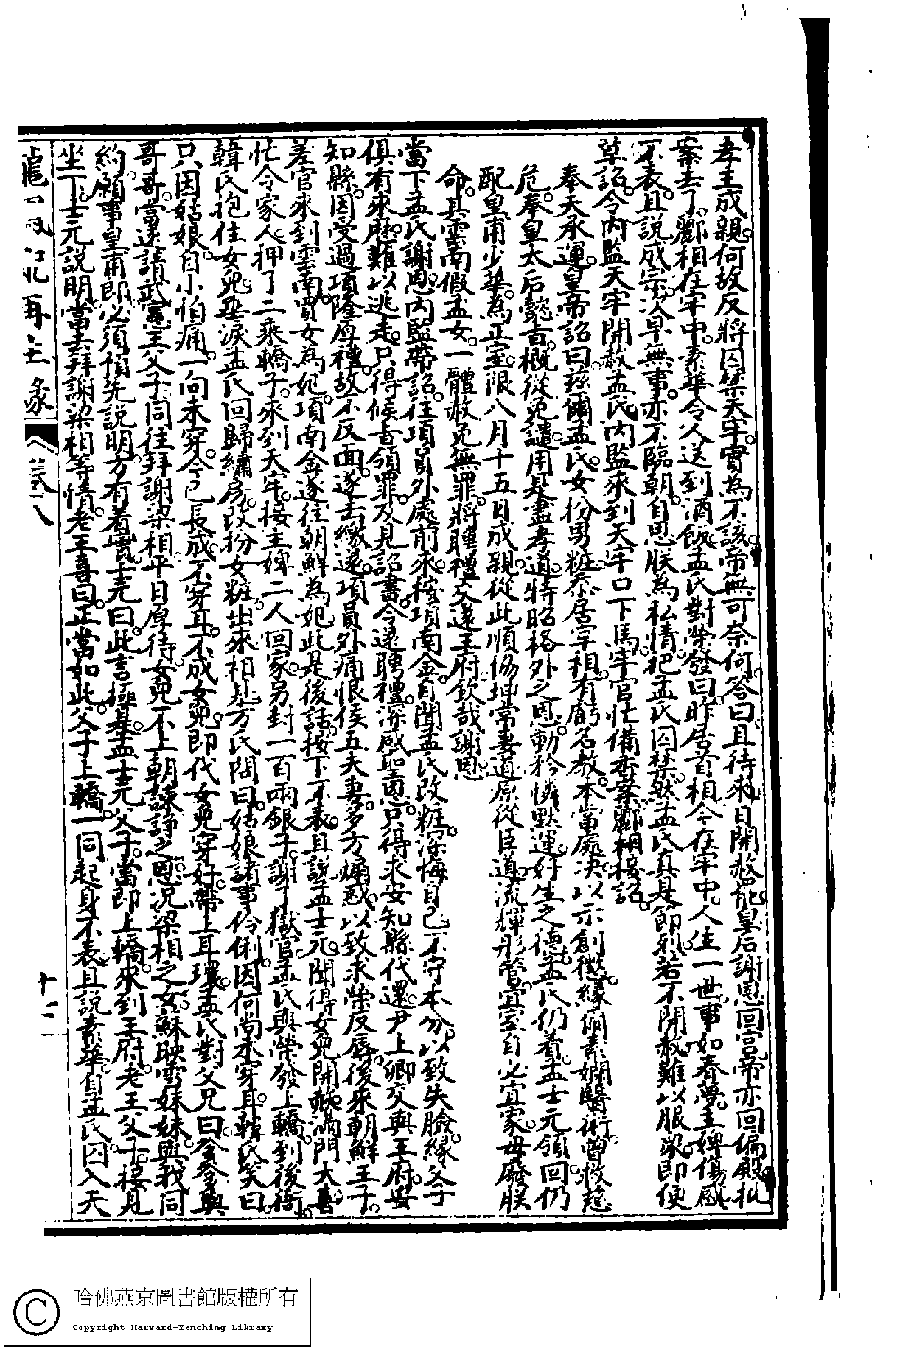 孝王成親。何故反將囚禁天牢。實為不該。帝無可奈何。答曰。且待來日開赦罷。皇后謝恩回宮。帝亦回偏殿批
案去了。酈相在牢中。素華令人送到酒飯。孟氏對榮發曰。昨居首相。今在牢中。人生一世。事如春夢。主婢傷感
不表。且說成宗次早無事。亦不臨朝。自思朕為私情。把孟氏囚禁。然孟氏真是節烈。若不開赦。難以服眾。即便
草詔。令內監天牢開赦孟氏。內監來到天牢口下馬。牢官忙備香案。酈相接詔。
奉天承運。皇帝詔曰。茲爾孟氏。女扮男粧。忝居宰相。有虧名教。本當處決。以示創懲。緣爾素嫻醫術。曾救慈
危。奉皇太后懿旨。概從免譴。用是盡孝道。特昭格外之恩。勅矜憐默運好生之德。孟氏仍着孟士元領回。仍
配皇甫少華為正室。限八月十五日成親。從此順倫坤常。妻道原從臣道。流輝彤管。宜室自必宜家。毋廢朕
命。其雲南假孟女。一體赦免無罪。將聘禮交還王府。欽哉謝恩。
當下孟氏謝恩。內監帶詔往項員外處。前來 項南金。自聞孟氏改粧。深悔自己不守本分。以致失臉。緣父子
俱有來歷。難以逃走。只得候旨領罪。及見詔書。令還聘禮。深感聖恩。只得求安知縣代還尹上卿。交與王府。安
知縣因受過項隆厚禮。故不反面。遂去繳還。項員外痛恨侯五夫妻。多方煽惑。以致求榮反辱。後來朝鮮王子。
差官來到雲南。買女為妃。項南金遂往朝鮮為妃。此是後話。按下不表。且說孟士元。聞得女兒開赦。滿門大喜。
忙令家人。押了二乘轎子。來到天牢。接主婢二人回家。另封一百兩銀子。謝了獄官。孟氏與榮發上轎。到後衙。
韓氏抱住女兒垂淚。孟氏回歸繡房。改扮女粧出來相見。方氏問曰。姑娘諸事伶俐。因何尚未穿耳。韓氏笑曰。
只因姑娘自小怕痛。一向未穿。今已長成。不穿耳。不成女兒。即代女兒穿好。帶上耳環。孟氏對父兄曰。爹爹與
哥哥。當速請武憲王父子。同往拜謝梁相平日厚待女兒。不上朝諫諍之恩。況梁相之女。蘇映雪妹妹與我同
約。願事皇甫郎。必須預先說明。方有着實。士元曰。此言極是。孟士元父子。當即上轎。來到王府。老王父子接見
坐下。士元說明。當去拜謝梁相等情。老王喜曰。正當如此。父子上轎。一同起身不表。且說素華自孟氏囚入天
龍鳳配再生緣
卷八
十二
哈佛燕京圖書館版權所有
Copyright Harvard-Yenching Library